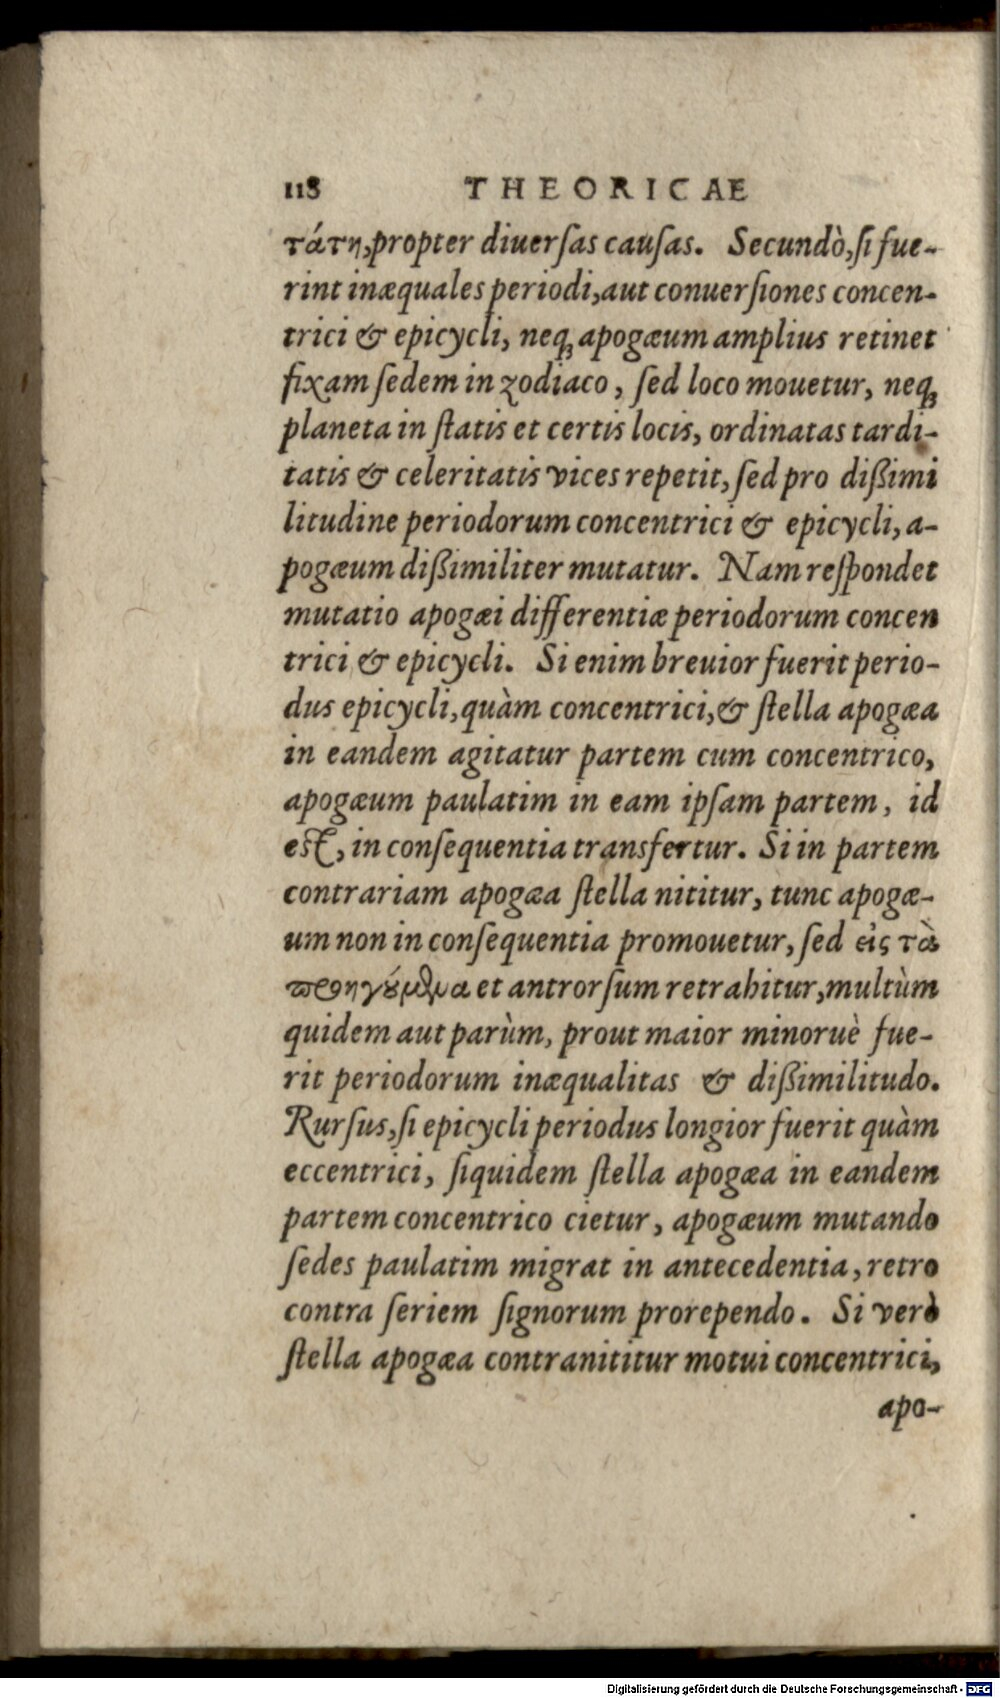 118 THEORICAE
τάτη, propter diuerſas cauſas. Secundò, ſi fue-
rint inæquales periodi, aut conuerſiones concen-
trici & epicycli, neq́ꝫ apogæum amplius retinet
fixam ſedem in zodiaco, ſed loco mouetur, neqꝫ
planeta in ſtatis et certis locis, ordinatas tardi-
tatis & celeritatis vices repetit, ſed pro dißimi
litudine periodorum concentrici & epicycli, a-
pogæum dißimiliter mutatur. Nam reſpondet
mutatio apogæi differentiæ periodorum concen
trici & epicycli. Si enim breuior fuerit perio-
dus epicycli, quàm concentrici, & ſtella apogæa
in eandem agitatur partem cum concentrico,
apogæum paulatim in eam ipſam partem, id
eſt, in conſequentia transfertur. Si in partem
contrariam apogæa ſtella nititur, tunc apogæ-
um non in conſequentia promouetur, ſed εἰς τὰ
προηγούμενα et antrorſum retrahitur, multùm
quidem aut parùm, prout maior minoruè fue-
rit periodorum inæqualitas & dißimilitudo.
Rurſus, ſi epicycli periodus longior fuerit quàm
eccentrici, ſiquidem ſtella apogæa in eandem
partem concentrico cietur, apogæum mutando
ſedes paulatim migrat in antecedentia, retro
contra ſeriem ſignorum prorependo. Si verò
ſtella apogæa contranititur motui concentrici,
apo-
Digitalisierung gefördert durch die Deutsche Forschungsgemeinschaft - DFG